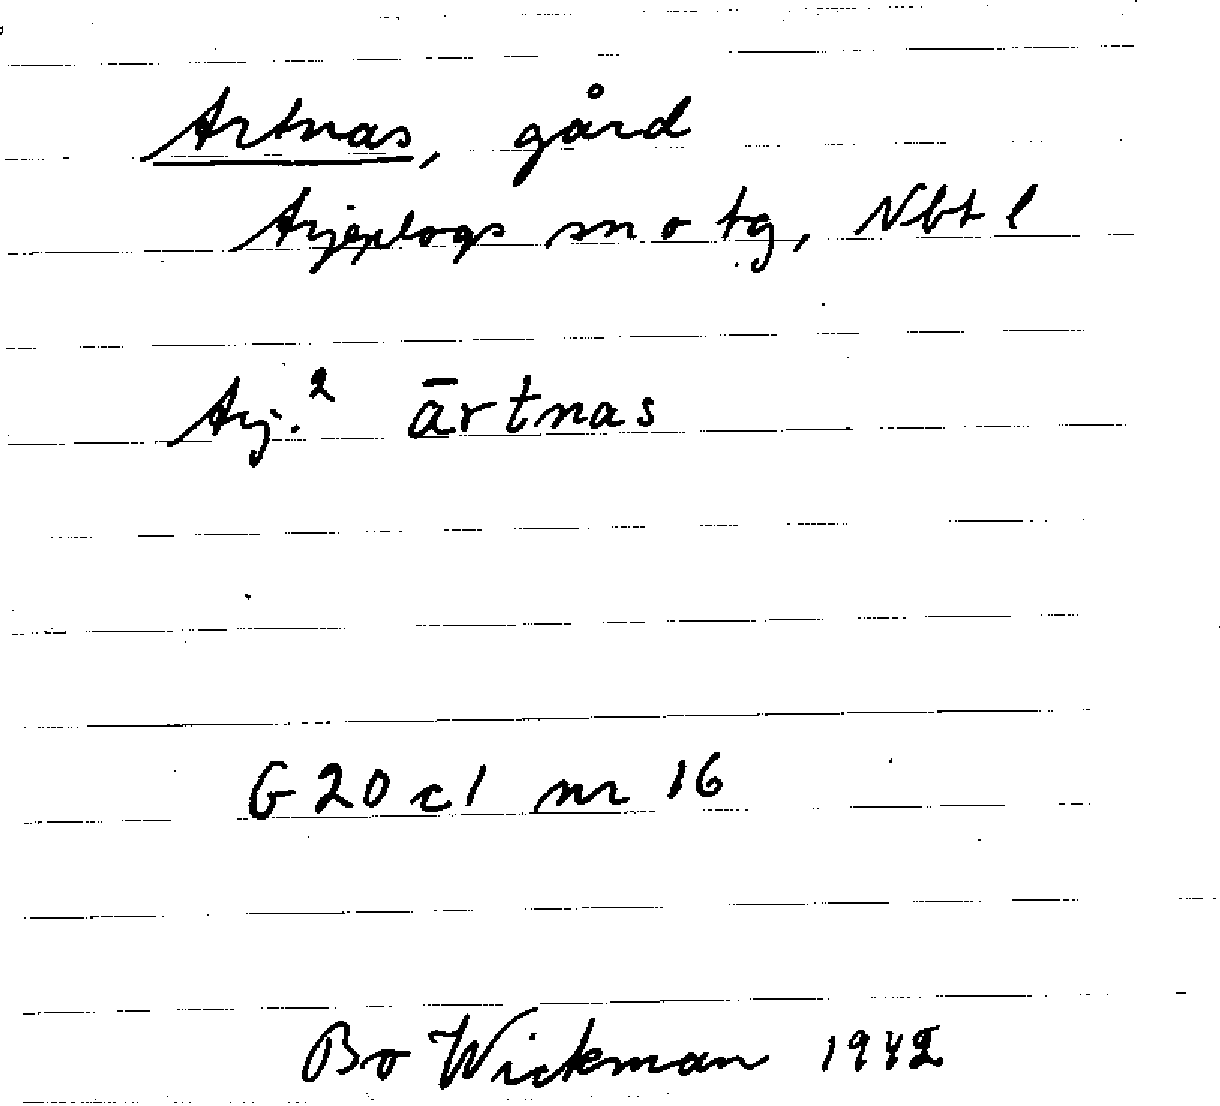 Artnas, gård
Arjeplogs sn o tg, Nbt l
Arj.² ārtnas
G 20 c1 nr 16
Bo Wickman 1942